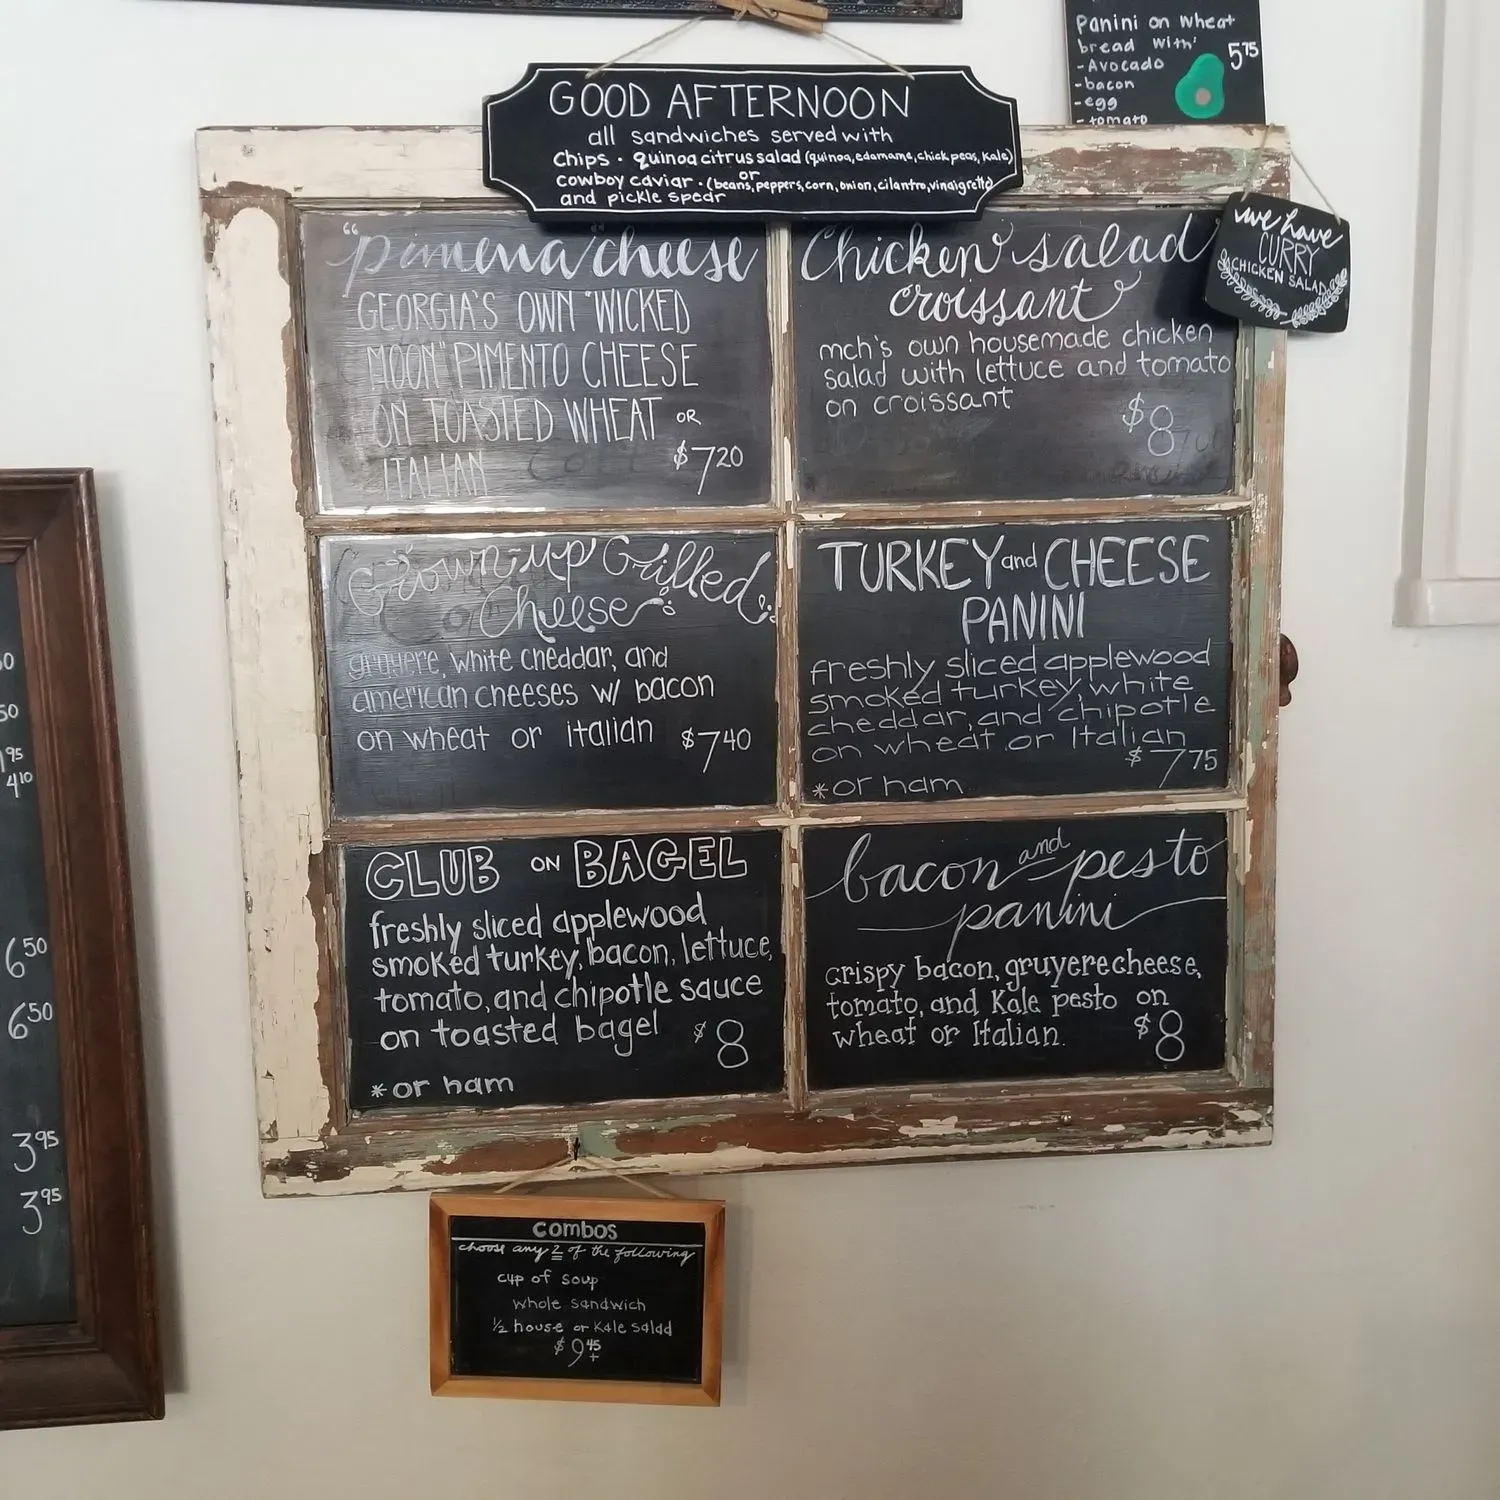 Panini on wheat
bread with:
-Avocado
-bacon
-egg
-tomato
5 75
GOOD AFTERNOON
all sandwiches served with
Chips · quinoa citrus salad (quinoa, edamame, chick peas, kale)
or
cowboy caviar · (beans, peppers, corn, onion, cilantro, vinaigrette)
and pickle spear
we have
CURRY
CHICKEN SALAD
"pimena" cheese
GEORGIA'S OWN "WICKED
MOON" PIMENTO CHEESE
ON TOASTED WHEAT OR
ITALIAN
$7 20
Chicken salad
croissant
mch's own housemade chicken
salad with lettuce and tomato
on croissant
$8
Grown-up Grilled
Cheese
gruyere, white cheddar, and
american cheeses w/ bacon
on wheat or italian $7 40
TURKEY and CHEESE
PANINI
freshly sliced applewood
smoked turkey, white
cheddar, and chipotle
on wheat or Italian
$7 75
*or ham
CLUB ON BAGEL
freshly sliced applewood
smoked turkey, bacon, lettuce,
tomato, and chipotle sauce
on toasted bagel $8
*or ham
bacon and pesto
panini
crispy bacon, gruyere cheese,
tomato, and Kale pesto on
wheat or Italian. $8
combos
choose any 2 of the following
cup of soup
whole sandwich
1/2 house or Kale salad
$9 45
+
50
50
95
4 10
6 50
6 50
3 95
3 95